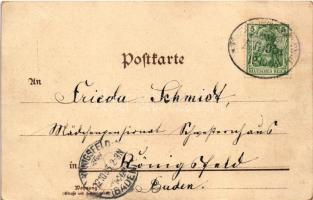 Postkarte
An
Frieda Schmidt,
Mädchenpensionat Schwesternhaus
in Königsfeld
Baden.
Wohnung
KÖNIGSFELD
(BADEN)
5
DEUTSCHES REICH